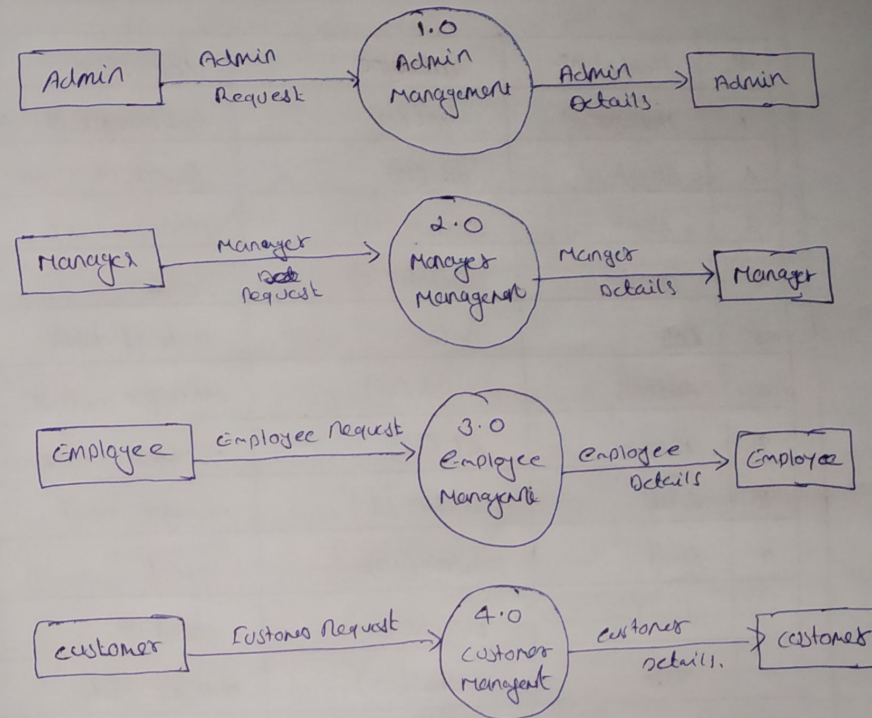 1.0
Admin
Admin
Request
Admin
Management
Admin
Details.
Admin
2.0
Manager
Manager
Request
Manager
Management
Manger
Details
Manager
3.0
Employee
Employee Request
Employee
Managemnt
employee
Details
Employee
4.0
customer
Customer Request
customer
Managent
customer
Details.
customer